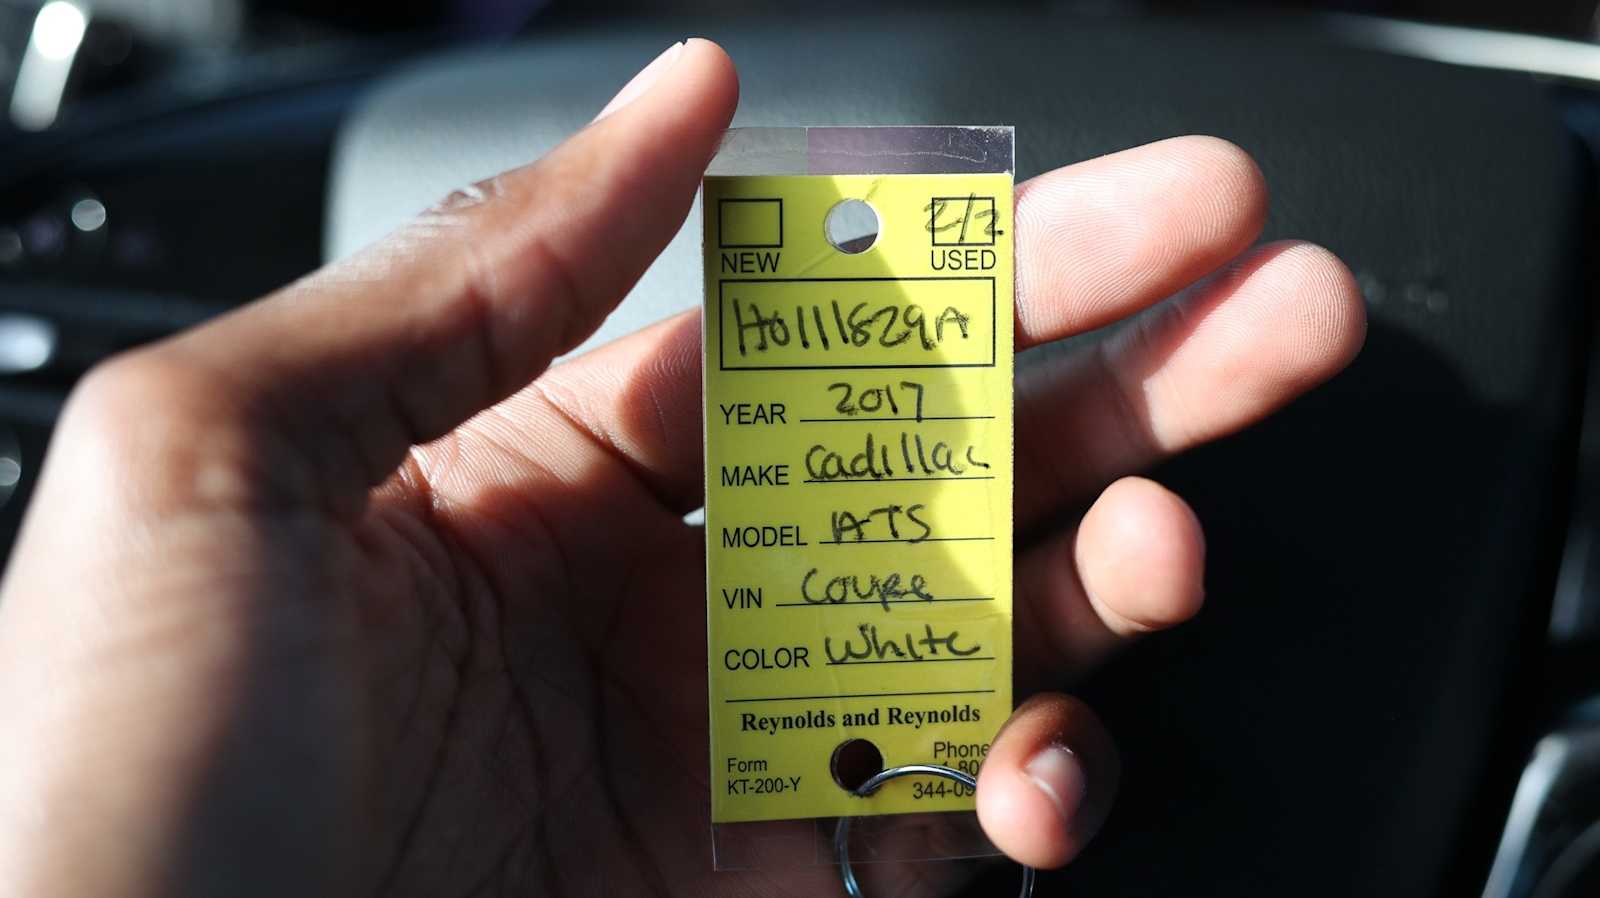 2/2
NEW USED
H0111829A
YEAR 2017
MAKE Cadillac
MODEL ATS
VIN Coupe
COLOR White
Reynolds and Reynolds
Form Phone
KT-200-Y 344-09